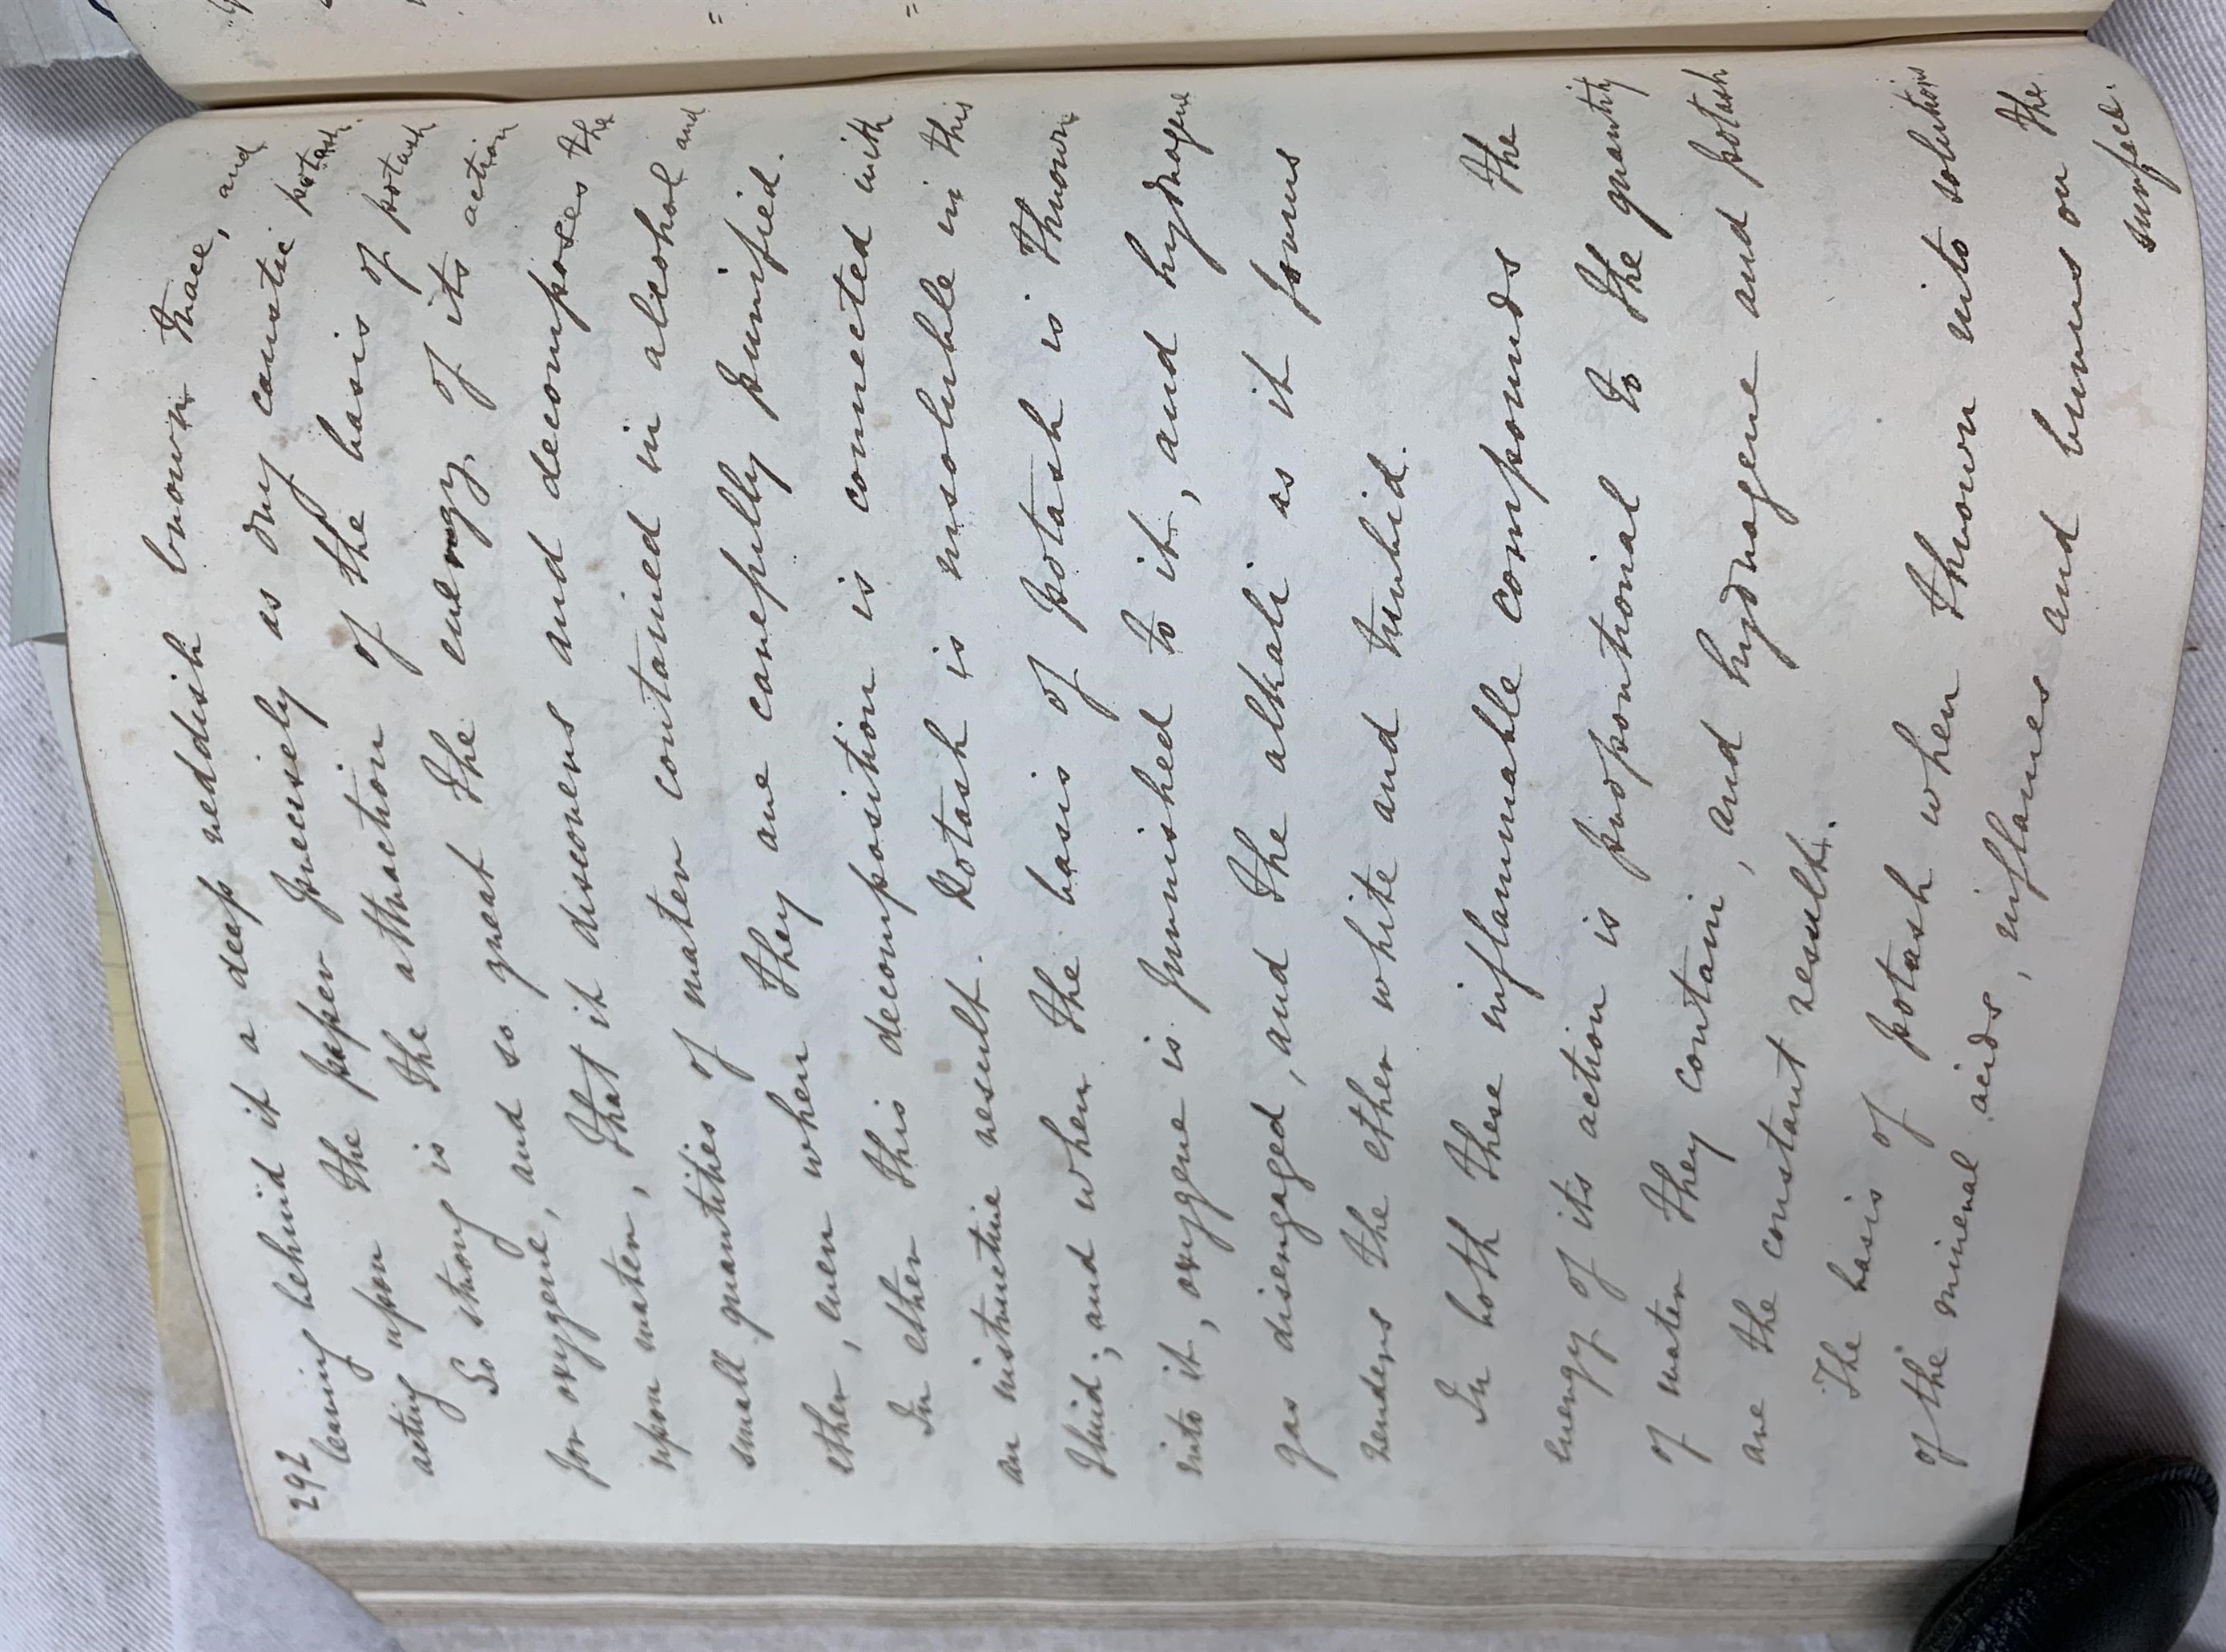 292
leaving behind it a deep reddish brown trace, and
acting upon the paper precisely as dry caustic potash.
So strong is the attraction of the basis of potash
for oxygene, and so great the energy of its action
upon water, that it discovers and decomposes the
small quantities of water contained in alcohol and
ether, even when they are carefully purified.
In ether this decomposition is connected with
an instructive result. Potash is insoluble in this
fluid; and when the basis of potash is thrown
into it, oxygene is furnished to it, and hydrogene
gas disengaged, and the alkali as it forms
renders the ether white and turbid.
In both these inflammable compounds the
energy of its action is proportional to the quantity
of water they contain, and hydrogene and potash
are the constant result.
The basis of potash when thrown into solutions
of the mineral acids, inflames and burns on the
surface.